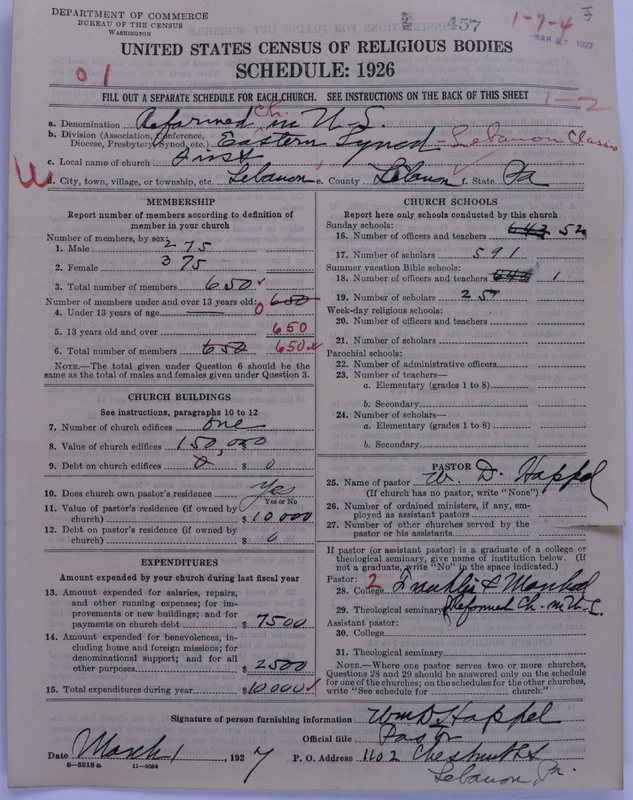 DEPARTMENT OF COMMERCE
BUREAU OF THE CENSUS
WASHINGTON
457
1-7-4
MAR 27 1927
UNITED STATES CENSUS OF RELIGIOUS BODIES
SCHEDULE: 1926
01
FILL OUT A SEPARATE SCHEDULE FOR EACH CHURCH. SEE INSTRUCTIONS ON THE BACK OF THIS SHEET
1-2
a. Denomination Reformed Ch. in U.S.
b. Division (Association, Conference, Diocese, Presbytery, Synod, etc.) Eastern Synod - Lebanon Classis
c. Local name of church First
d. City, town, village, or township, etc. Lebanon e. County Lebanon f. State Pa
MEMBERSHIP
Report number of members according to definition of
member in your church
Number of members, by sex:
1. Male 275
2. Female 375
3. Total number of members 650
Number of members under and over 13 years old: 650
4. Under 13 years of age 0
5. 13 years old and over 650
6. Total number of members 650 650
NOTE.—The total given under Question 6 should be
the same as the total of males and females given under Question 3.
CHURCH BUILDINGS
See instructions, paragraphs 10 to 12
7. Number of church edifices one
8. Value of church edifices 150,000
9. Debt on church edifices 0 $ 0
10. Does church own pastor's residence Yes
Yes or No
11. Value of pastor's residence (if owned by
church) $ 10 000
12. Debt on pastor's residence (if owned by
church) $ 0
EXPENDITURES
Amount expended by your church during last fiscal year
13. Amount expended for salaries, repairs,
and other running expenses; for im-
provements or new buildings; and for
payments on church debt $ 7500
14. Amount expended for benevolences, in-
cluding home and foreign missions; for
denominational support; and for all
other purposes $ 2500
15. Total expenditures during year $ 10,000
CHURCH SCHOOLS
Report here only schools conducted by this church
Sunday schools:
16. Number of officers and teachers 52
17. Number of scholars 591
Summer vacation Bible schools:
18. Number of officers and teachers 1
19. Number of scholars 25
Week-day religious schools:
20. Number of officers and teachers
21. Number of scholars
Parochial schools:
22. Number of administrative officers
23. Number of teachers—
a. Elementary (grades 1 to 8)
b. Secondary
24. Number of scholars—
a. Elementary (grades 1 to 8)
b. Secondary
PASTOR
25. Name of pastor W. D. Happel
(If church has no pastor, write "None")
26. Number of ordained ministers, if any, em-
ployed as assistant pastors
27. Number of other churches served by the
pastor or his assistants
If pastor (or assistant pastor) is a graduate of a college or
theological seminary, give name of institution below. (If
not a graduate, write "No" in the space indicated.)
Pastor: 2
28. College Franklin & Marshal
29. Theological seminary Reformed Ch. in U.S.
Assistant pastor:
30. College
31. Theological seminary
NOTE.—Where one pastor serves two or more churches,
Questions 28 and 29 should be answered only on the schedule
for one of the churches; on the schedules for the other churches,
write "See schedule for church."
Signature of person furnishing information Wm D Happel
Official title Pastor
Date March 1, 1927 P. O. Address 1102 Chestnut St
Lebanon, Pa.
8—5518a 11—9864